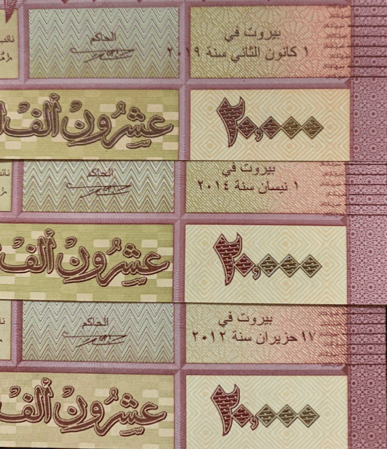 الحاكم
بيروت في
١ كانون الثاني سنة ٢٠١٩
عشرون ألف
٢٠,٠٠٠
الحاكم
بيروت في
١ نيسان سنة ٢٠١٤
عشرون ألف
٢٠,٠٠٠
الحاكم
بيروت في
١٧ حزيران سنة ٢٠١٢
عشرون ألف
٢٠,٠٠٠